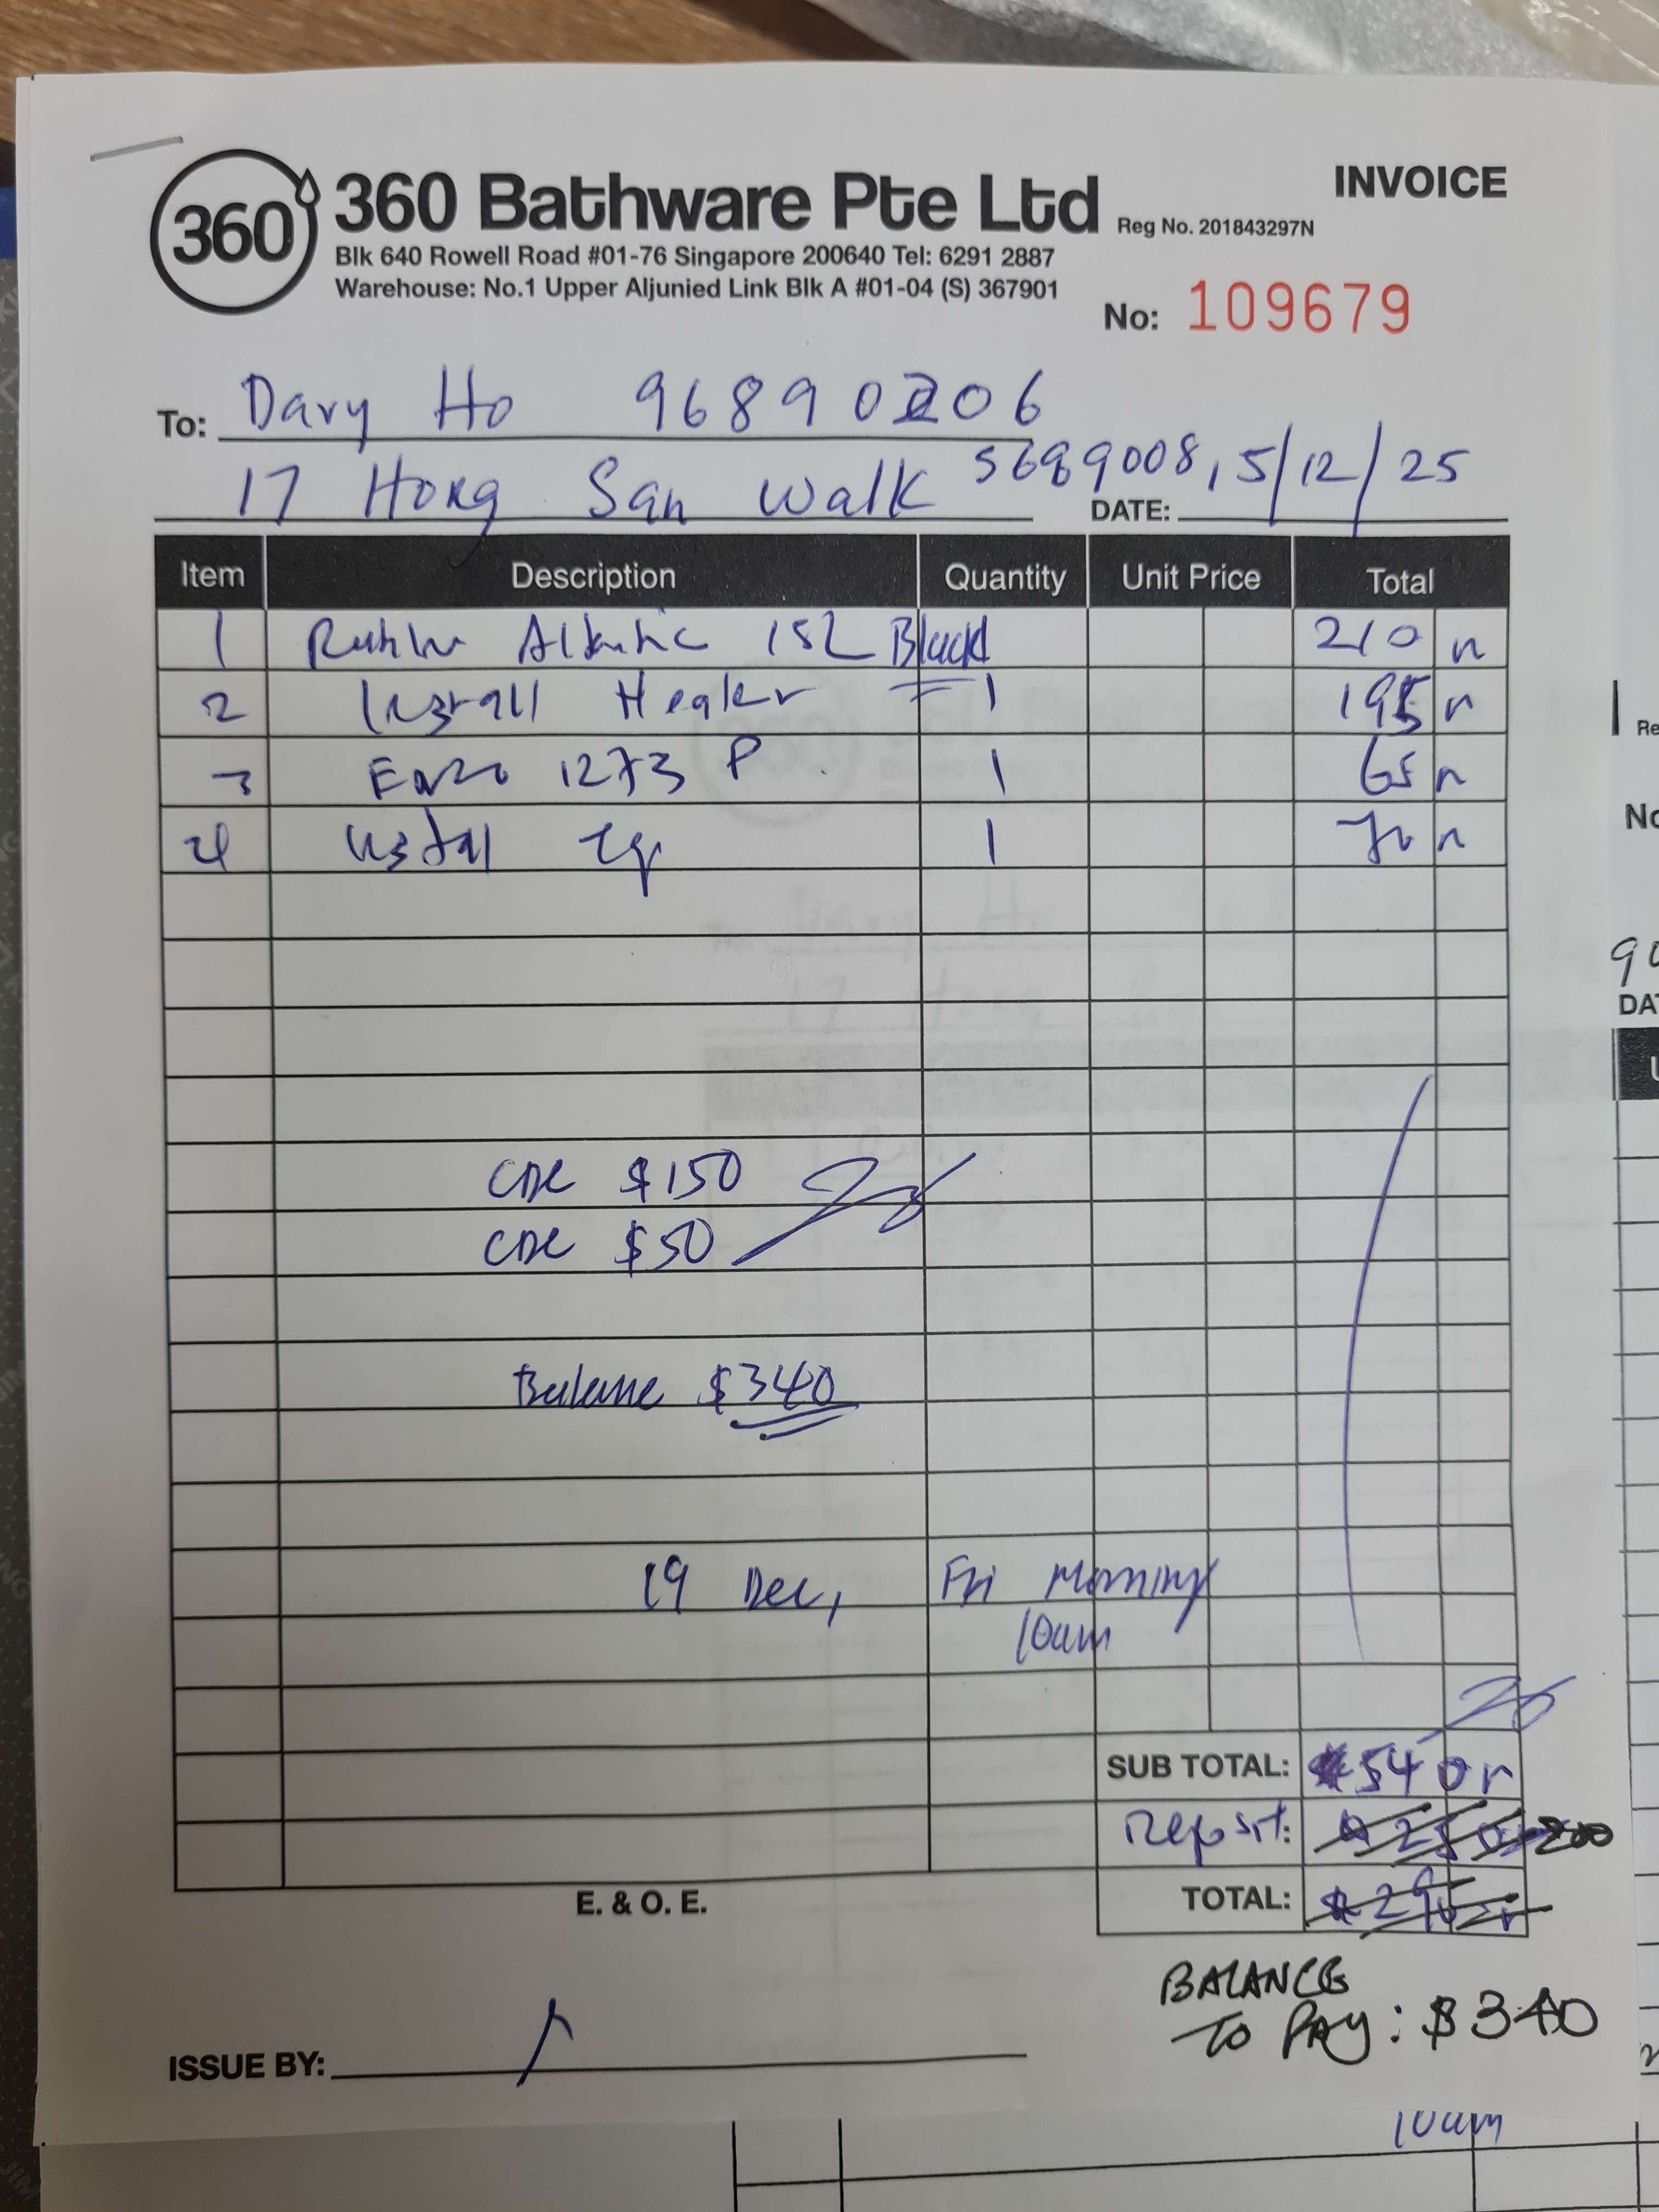 360 360 Bathware Pte Ltd Reg No. 201843297N INVOICE
Blk 640 Rowell Road #01-76 Singapore 200640 Tel: 6291 2887
Warehouse: No.1 Upper Aljunied Link Blk A #01-04 (S) 367901
No: 109679
To: Davy Ho 96890206
17 Hong San Walk S689008, DATE: 5/12/25
Item Description Quantity Unit Price Total
1 15L Black 1 210
2 Install Heater 1 195
3 Enzo 1273 P 1 65
4 Install 1 70
CDC $150
CDC $50
Balance $340
19 Dec, Fri Morning
10am
SUB TOTAL: $540
Deposit: 200
TOTAL:
E. & O. E.
BALANCE
TO PAY: $340
ISSUE BY:
10am